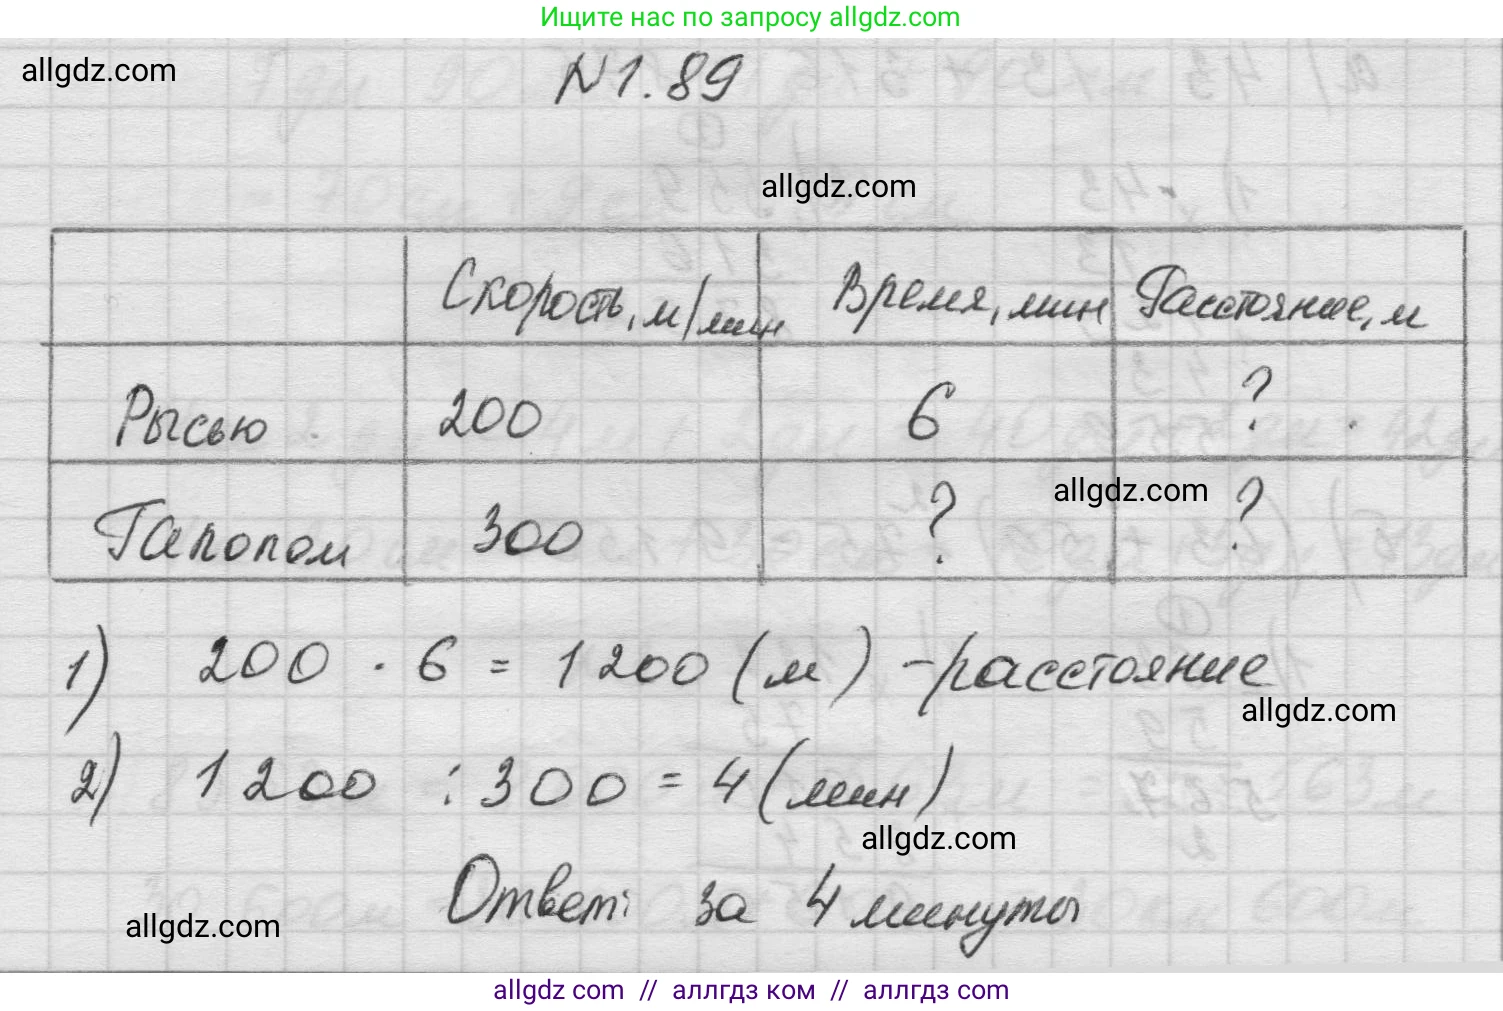 Ищите нас по запросу allgdz.com
allgdz.com
N1.89
allgdz.com
Скорость, м/мин Время, мин Расстояние, м
Рысью 200 6 ?
Галопом 300 ? ?
allgdz.com
1) 200 · 6 = 1200 (м) - расстояние
allgdz.com
2) 1200 : 300 = 4 (мин)
allgdz.com
Ответ: за 4 минуты
allgdz.com
allgdz com // аллгдз ком // аллгдз com